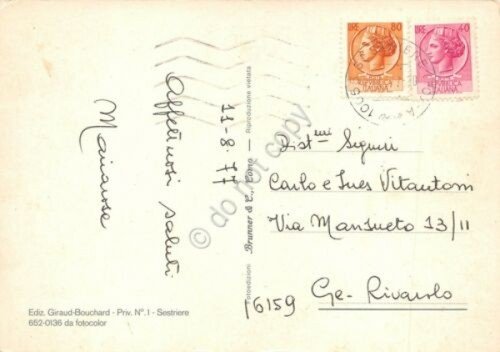 Affettuosi saluti
Marianosa
11-8-77
Ediz. Giraud-Bouchard - Priv. N°. 1 - Sestriere
652-0136 da fotocolor
Fotoedizioni Brunner & C., Como - Riproduzione vietata
LIRE 80
POSTE REPUBBLICA ITALIANA
LIRE 40
POSTE REPUBBLICA ITALIANA
Dist.mi Signori
Carlo e Ines Vitantoni
Via Mansueto 13/11
16159 Ge-Rivarolo
© do not copy